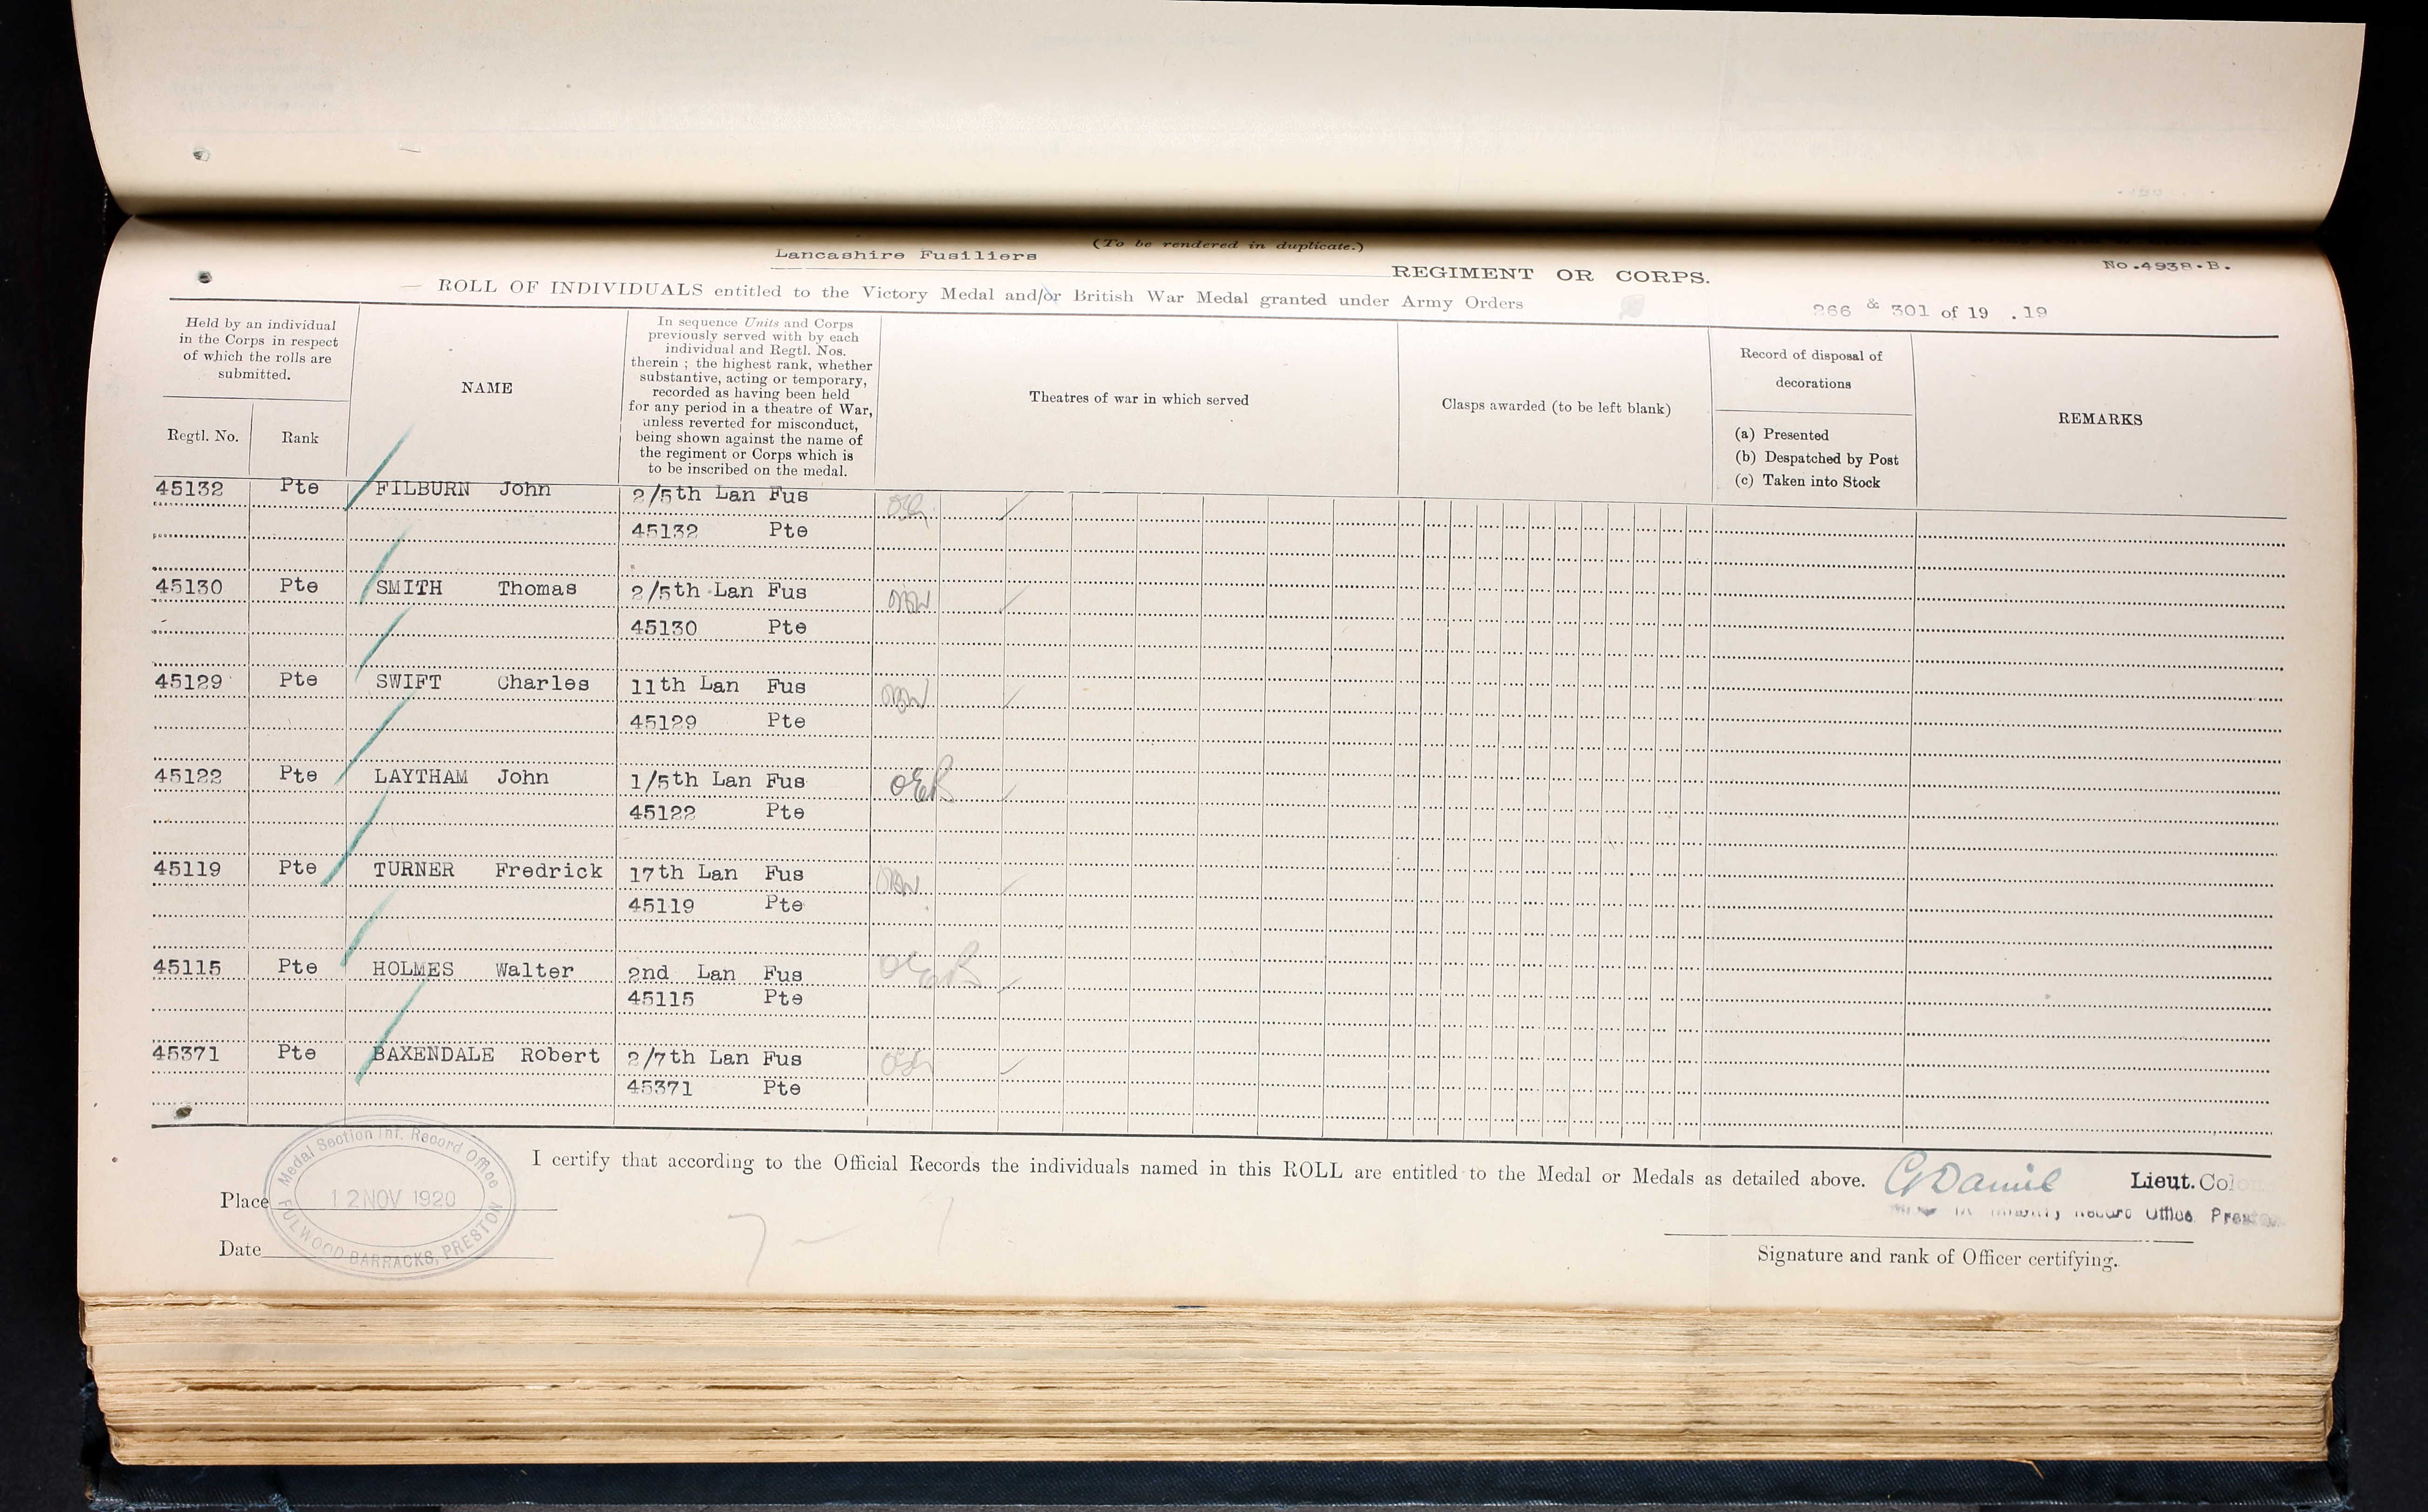 (To be rendered in duplicate.)
Lancashire Fusiliers REGIMENT OR CORPS. No.4938.B.
ROLL OF INDIVIDUALS entitled to the Victory Medal and/or British War Medal granted under Army Orders 266 & 301 of 19 .19
Held by an individual
in the Corps in respect
of which the rolls are
submitted.
Regtl. No.
Rank
NAME
In sequence Units and Corps
previously served with by each
individual and Regtl. Nos.
therein ; the highest rank, whether
substantive, acting or temporary,
recorded as having been held
for any period in a theatre of War,
unless reverted for misconduct,
being shown against the name of
the regiment or Corps which is
to be inscribed on the medal.
Theatres of war in which served
Clasps awarded (to be left blank)
Record of disposal of
decorations
(a) Presented
(b) Despatched by Post
(c) Taken into Stock
REMARKS
45132 Pte FILBURN John 2/5th Lan Fus
45132 Pte
45130 Pte SMITH Thomas 2/5th Lan Fus
45130 Pte
45129 Pte SWIFT Charles 11th Lan Fus
45129 Pte
45122 Pte LAYTHAM John 1/5th Lan Fus
45122 Pte
45119 Pte TURNER Fredrick 17th Lan Fus
45119 Pte
45115 Pte HOLMES Walter 2nd Lan Fus
45115 Pte
45371 Pte BAXENDALE Robert 2/7th Lan Fus
45371 Pte
I certify that according to the Official Records the individuals named in this ROLL are entitled to the Medal or Medals as detailed above. Lieut. Col
Record Office Preston
Place
Date
Medal Section Inf. Record Office
12 NOV 1920
FULWOOD BARRACKS, PRESTON
Signature and rank of Officer certifying.